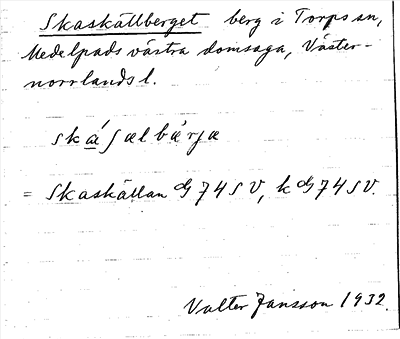 Skaskällberget berg i Torps sn,
Medelpads västra domsaga, Väster-
norrlands l.
skáʃælbærja
= Skaskätlan G 74 SV, k G 74 SV.
Valter Jansson 1932.